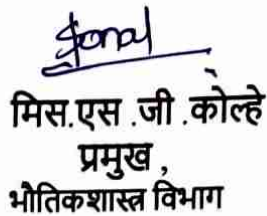 मिस.एस .जी .कोल्हे
प्रमुख ,
भौतिकशास्त्र विभाग